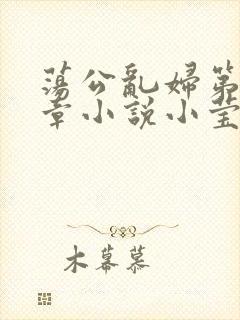 蕩公亂婦第
章小說小莹
木幕慕